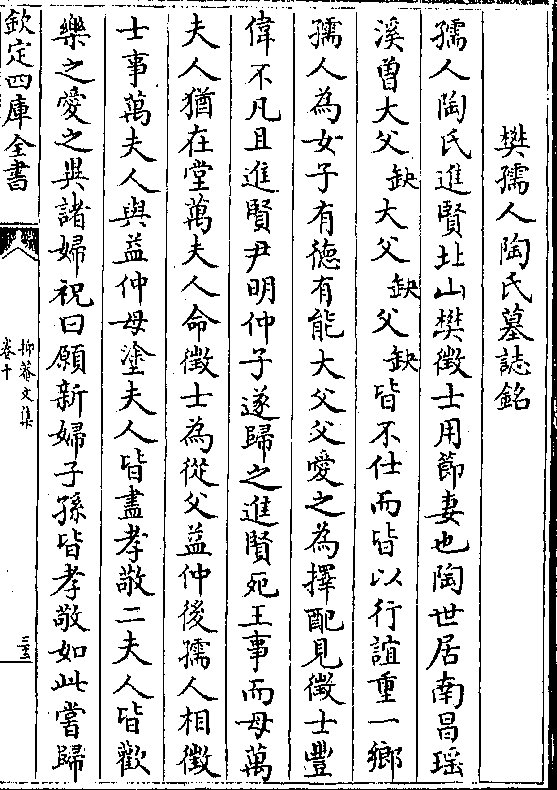 樊孺人陶氏墓誌銘
孺人陶氏進賢北山樊徵士用節妻也陶世居南昌瑶
溪曾大父缺大父缺父缺皆不仕而皆以行誼重一鄉
孺人為女子有徳有能大父父愛之為擇配見徵士豐
偉不凡且進賢尹明仲子遂歸之進賢死王事而母萬
夫人猶在堂萬夫人命徵士為從父益仲後孺人相徵
士事萬夫人與益仲母塗夫人皆盡孝敬二夫人皆歡
樂之愛之異諸婦祝曰願新婦子孫皆孝敬如此嘗歸
欽定四庫全書
抑菴文集
卷十
三五